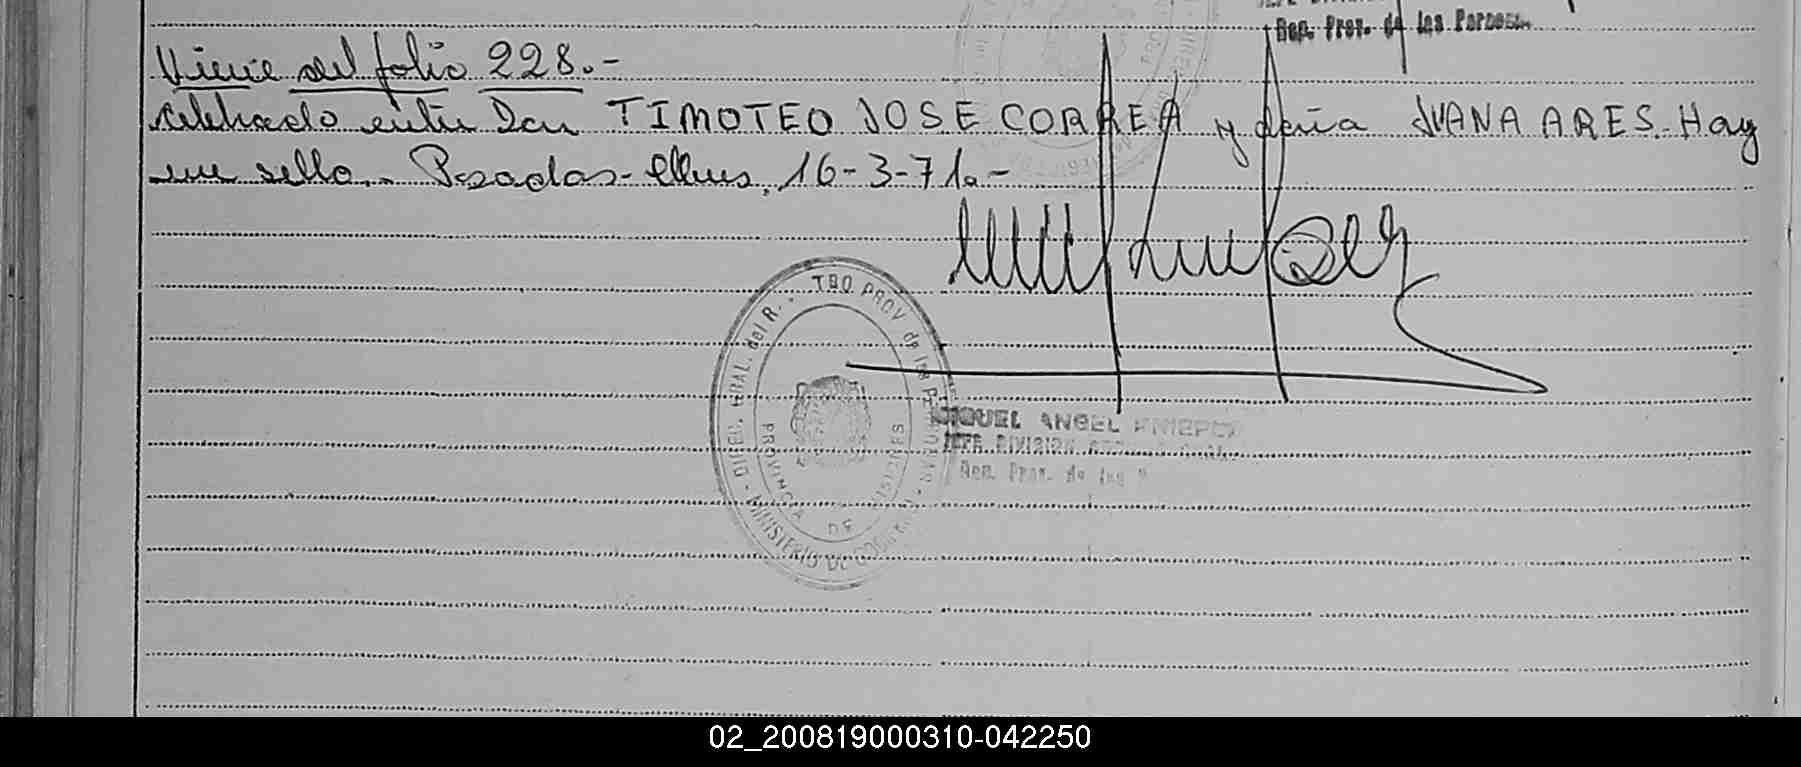 Rep. Prov. de las Personas.
Viene del folio 228.-
celebrado entre Don TIMOTEO JOSE CORREA y doña JUANA ARES.- Hay
un sello.- Posadas- Mnes, 16-3-71.-
DIREC. GRAL. del R. TRO PROV de las
PROVINCIA DE MISIONES
MINISTERIO DE
MIGUEL ANGEL
JEFE DIVISION
Rep. Prov. de las
02_200819000310-042250